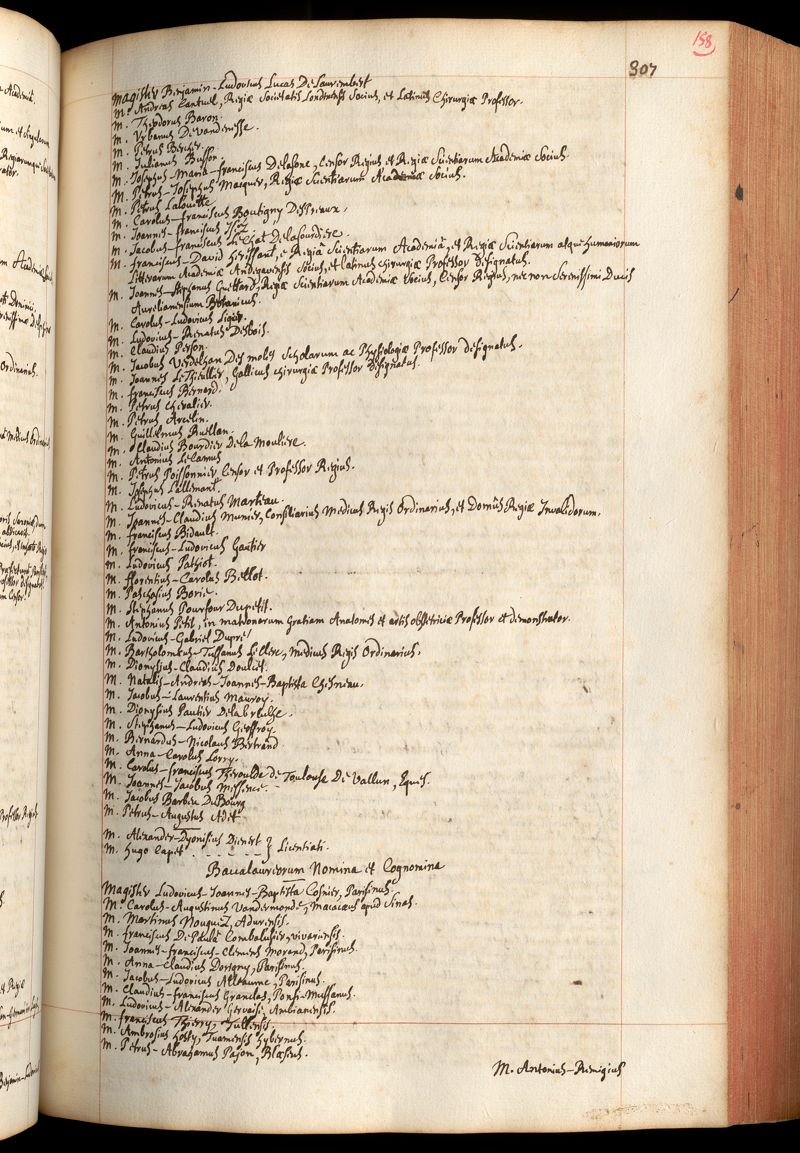 158
307
Magister Benjamin-Ludovicus Lucas De Laurembert
M. Andreas Cantwel, Regiæ Societatis Londinensis Socius, et Latinus Chirurgiæ Professor.
M. Theodorus Baron.
M. Urbanus Devandenesse.
M. Petrus Bercher.
M. Julianus Busson.
M. Josephus-Maria-franciscus Delasone, Censor Regius et Regiæ Scientiarum Academiæ Socius
M. Petrus-Josephus Macquer, Regiæ Scientiarum Academiæ Socius.
M. Petrus Lalouette
M. Carolus-franciscus Boutigny Despreaux.
M. Joannes-franciscus Isez
M. Jacobus-franciscus LeChat Delasourdiere.
M. Franciscus-David Herissant, è Regiâ Scientiarum Academiâ, et Regiæ Scientiarum atque humaniorum
Litterarum Academiæ Andegavensis Socius, et latinus chirurgiæ Professor designatus.
M. Joannes-Stephanus Guettard, Regiæ Scientiarum Academiæ Socius, Censor Regius, nec non Serenissimi Ducis
Aurelianensium Botanicus.
M. Carolus-Ludovicus Liger.
M. Ludovicus-Renatus Desbois.
M. Claudius Person.
M. Jacobus Verdelhan Des moles Scholarum ac Physiologiæ Professor designatus.
M. Joannes LeThieullier, Gallicus chirurgiæ Professor designatus.
M. franciscus Bernard.
M. Petrus Chevalier.
M. Petrus Arcelin.
M. Guillelmus Ruellan.
M. Claudius Bourdier Dela Mouliere.
M. Antonius LeCamus
M. Petrus Poissonnier Censor et Professor Regius.
M. Josephus Lallemant.
M. Ludovicus-Renatus Marteau.
M. Joannes-Claudius Munier, Consiliarius Medicus Regis Ordinarius, et Domûs Regiæ Invalidorum.
M. Franciscus Bidault.
M. Franciscus-Ludovicus Gautier
M. Ludovicus Pathiot.
M. Florentius-Carolus Bellot.
M. Paschasius Borie.
M. Stephanus Pourfour Dupetit.
M. Antonius Petit, in matronarum gratiam Anatomes et artis obstetriciæ Professor et demonstrator.
M. Ludovicus-Gabriel Dupré
M. Bartholomæus-Tussanus LeClerc, Medicus Regis Ordinarius.
M. Dionysius-Claudius Doulcet.
M. Natalis-Andreas-Joannes-Baptista Chesneau.
M. Jacobus-Laurentius Mauroy.
M. Dionysius Pautier Delabreuille.
M. Stephanus-Ludovicus Geoffroy.
M. Bernardus-Nicolaus Bertrand
M. Anna-Carolus Lorry.
M. Carolus-franciscus Theroulde de Toulouse De Vallun, Eques.
M. Joannes-Jacobus Messence.
M. Jacobus Barbeu DuBourg
M. Petrus-Augustus Adet
M. Alexander-Dyonisius Dienert } Licentiati.
M. Hugo Capet
Baccalaureorum Nomina et Cognomina
Magister Ludovicus-Joannes-Baptista Cosnier, Parisinus.
M. Carolus-Augustinus Vandermonde, Macacæus apud Sinas.
M. Martinus Nouguez, Adurensis.
M. franciscus De Paula Combalusier, vivariensis.
M. Joannes-franciscus-Clemens Morand, Parisinus.
M. Anna-Claudius Dorigny, Parisinus.
M. Jacobus-Ludovicus Alleaume, Parisinus.
M. Claudius-Franciscus Granclas, Ponti-Mussanus.
M. Ludovicus-Alexander Gervaise, Ambianensis.
M. franciscus Thierry, Tullensis.
M. Ambrosius Hosty, Tuamensis Hybernus.
M. Petrus-Abrahamus Pajon, Blæsus.
M. Antonius-Remigius